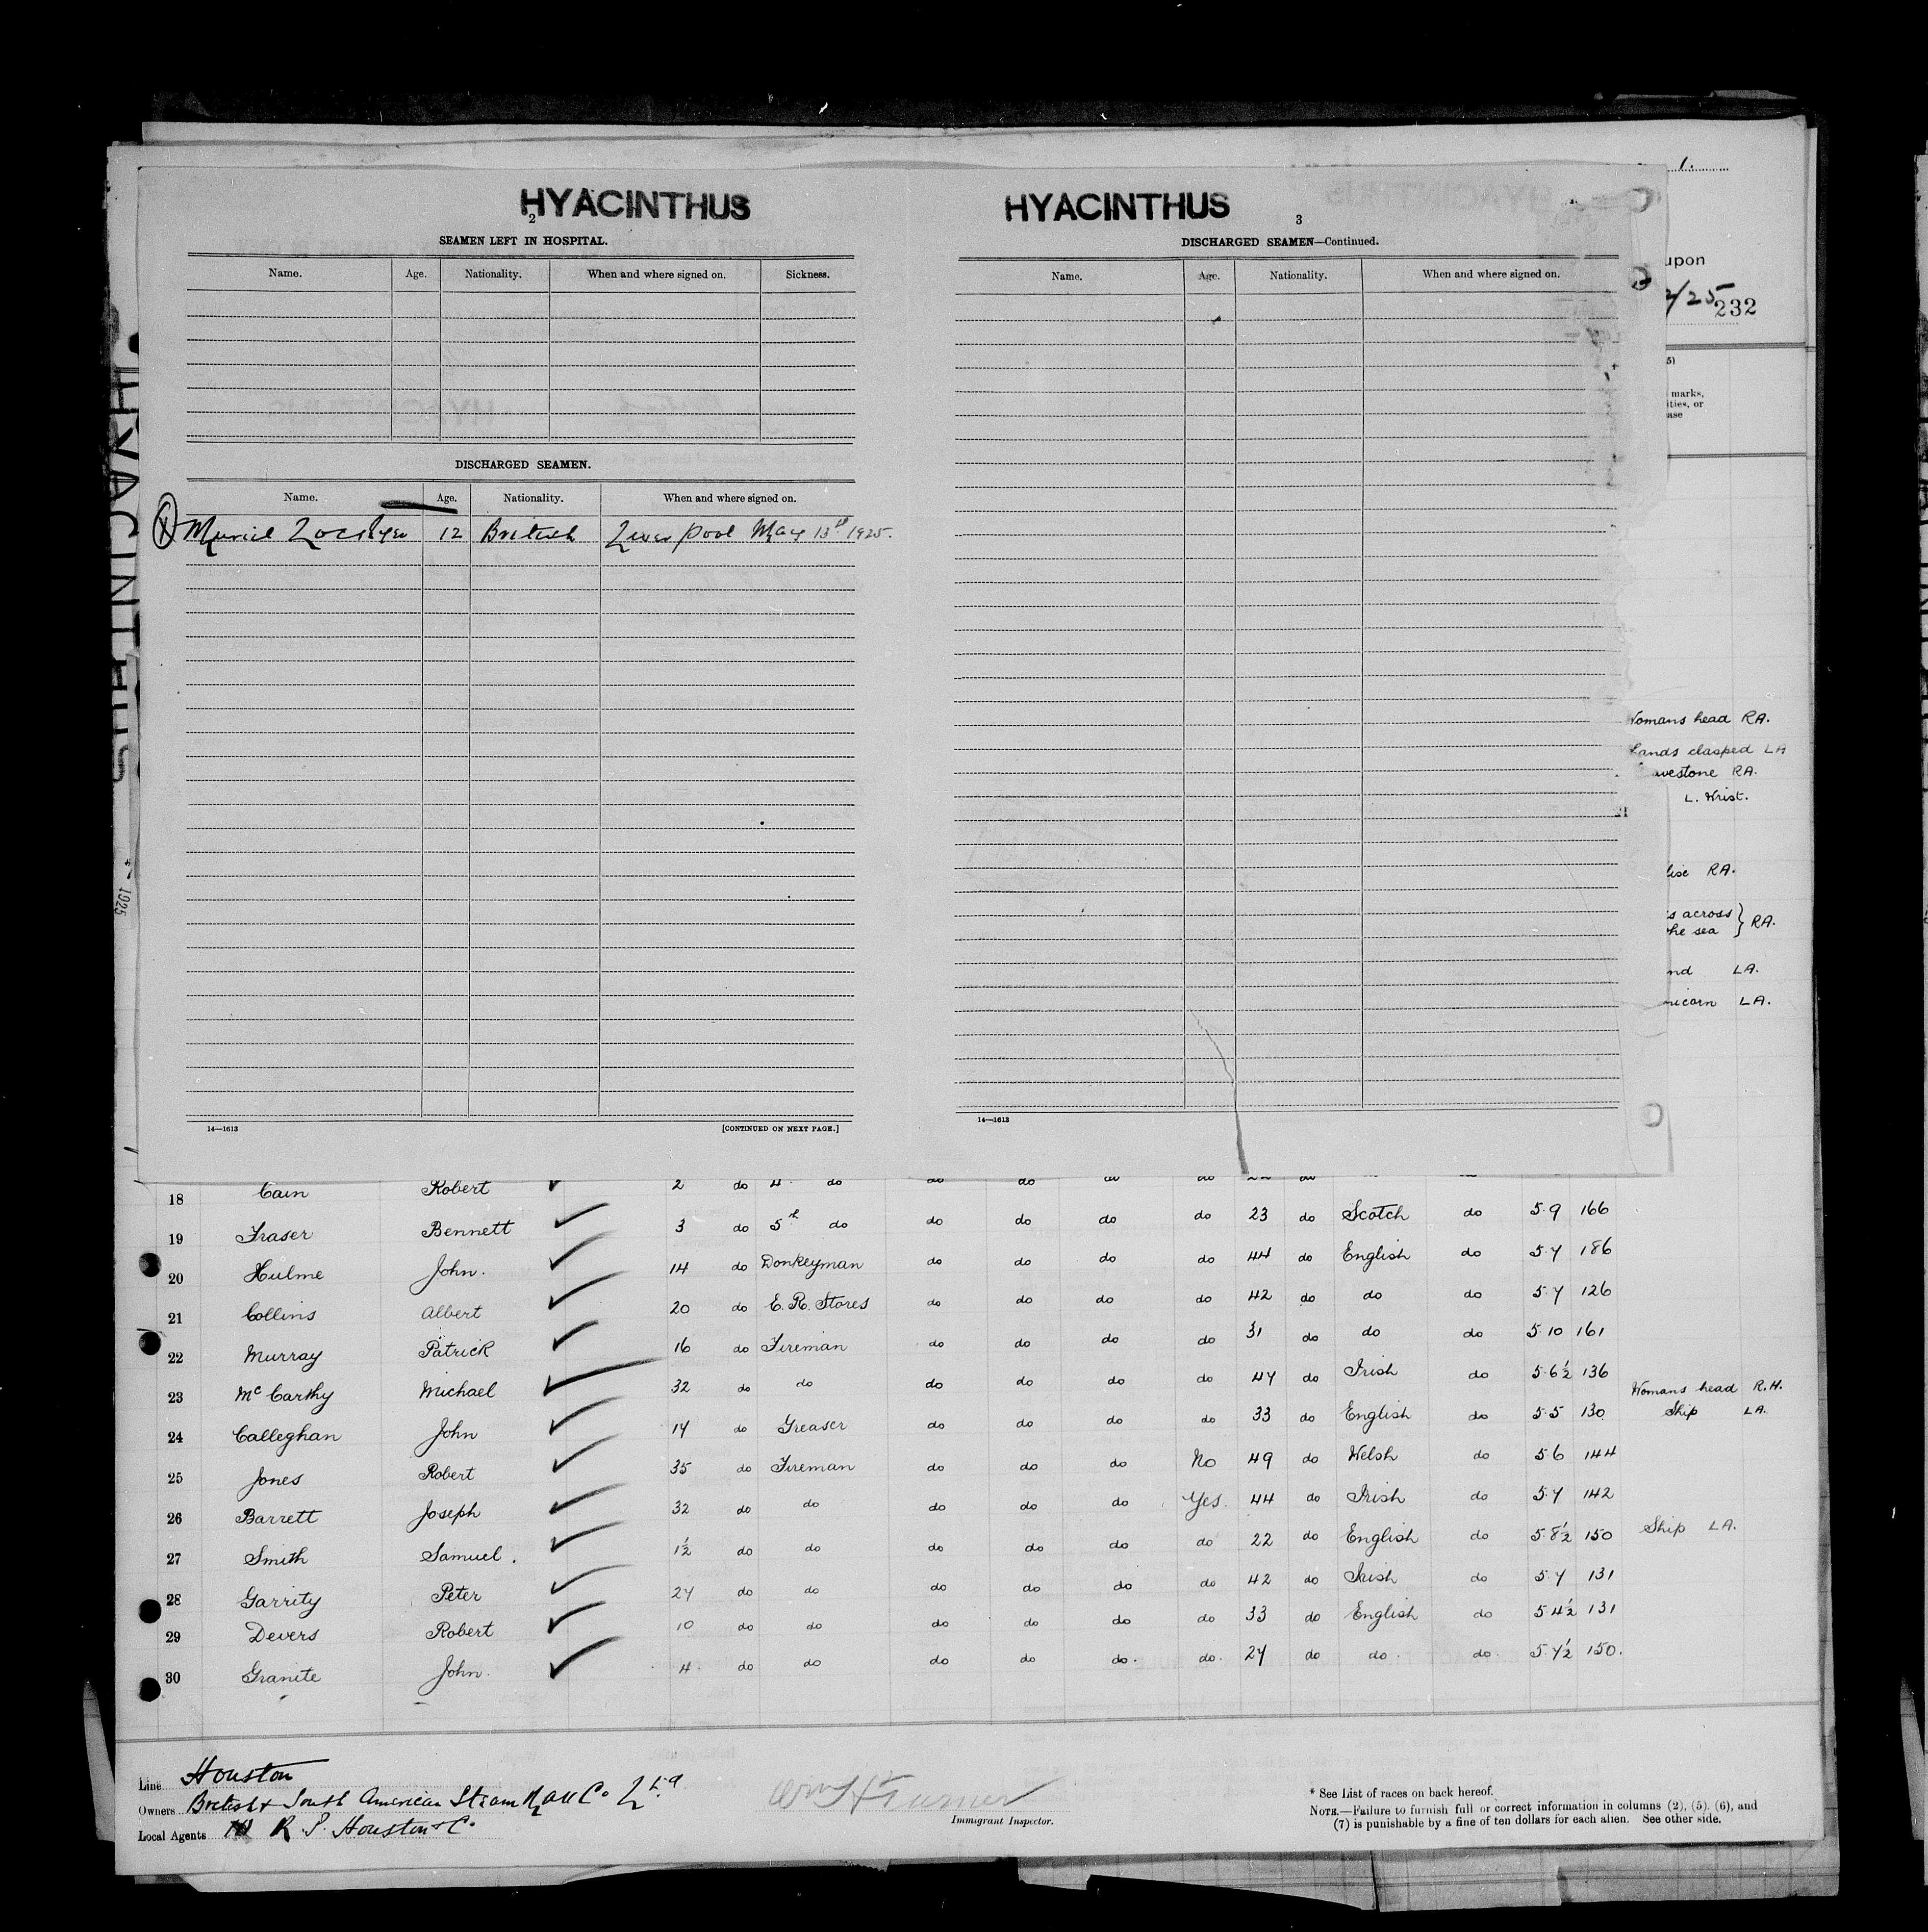 HYACINTHUS
2
SEAMEN LEFT IN HOSPITAL.
Name. Age. Nationality. When and where signed on. Sickness.
DISCHARGED SEAMEN.
Name. Age. Nationality. When and where signed on.
Muriel 12 British Liverpool May 13th 1925.
14—1613 [CONTINUED ON NEXT PAGE.]
HYACINTHUS
3
DISCHARGED SEAMEN—Continued.
Name. Age. Nationality. When and where signed on.
14—1613
1.
upon
2/25
232
marks,
ities, or
ase
Womans head RA.
Hands clasped LA
RA.
L. Wrist.
RA.
s across } RA.
the sea
nd LA.
LA.
HYACINTHUS
1925
18 Cain Robert 2 do 4 do do do do do 22 do
19 Fraser Bennett 3 do 5th do do do do do 23 do Scotch do 5.9 166
20 Hulme John. 14 do Donkeyman do do do do 44 do English do 5.7 186
21 Collins Albert 20 do E.R. Stores do do do do 42 do do do 5.7 126
22 Murray Patrick 16 do Fireman do do do do 31 do do do 5.10 161
23 McCarthy Michael 32 do do do do do do 47 do Irish do 5.6½ 136
24 Calleghan John 14 do Greaser do do do do 33 do English do 5.5 130 Womans head R.H. Ship LA.
25 Jones Robert 35 do Fireman do do do No 49 do Welsh do 5.6 144
26 Barrett Joseph 32 do do do do do Yes. 44 do Irish do 5.7 142
27 Smith Samuel. 1½ do do do do do do 22 do English do 5.8½ 150 Ship LA.
28 Garrity Peter 27 do do do do do do 42 do Irish do 5.7 131
29 Devers Robert 10 do do do do do do 33 do English do 5.4½ 131
30 Granite John. 4. do do do do do. do. 27 do do. do. 5.7½ 150.
Line Houston
Owners British & South American Steam Nav Co Ltd
Local Agents R. P. Houston & Co
Wm H Turner
Immigrant Inspector.
* See List of races on back hereof.
NOTE.—Failure to furnish full or correct information in columns (2), (5), (6), and
(7) is punishable by a fine of ten dollars for each alien. See other side.